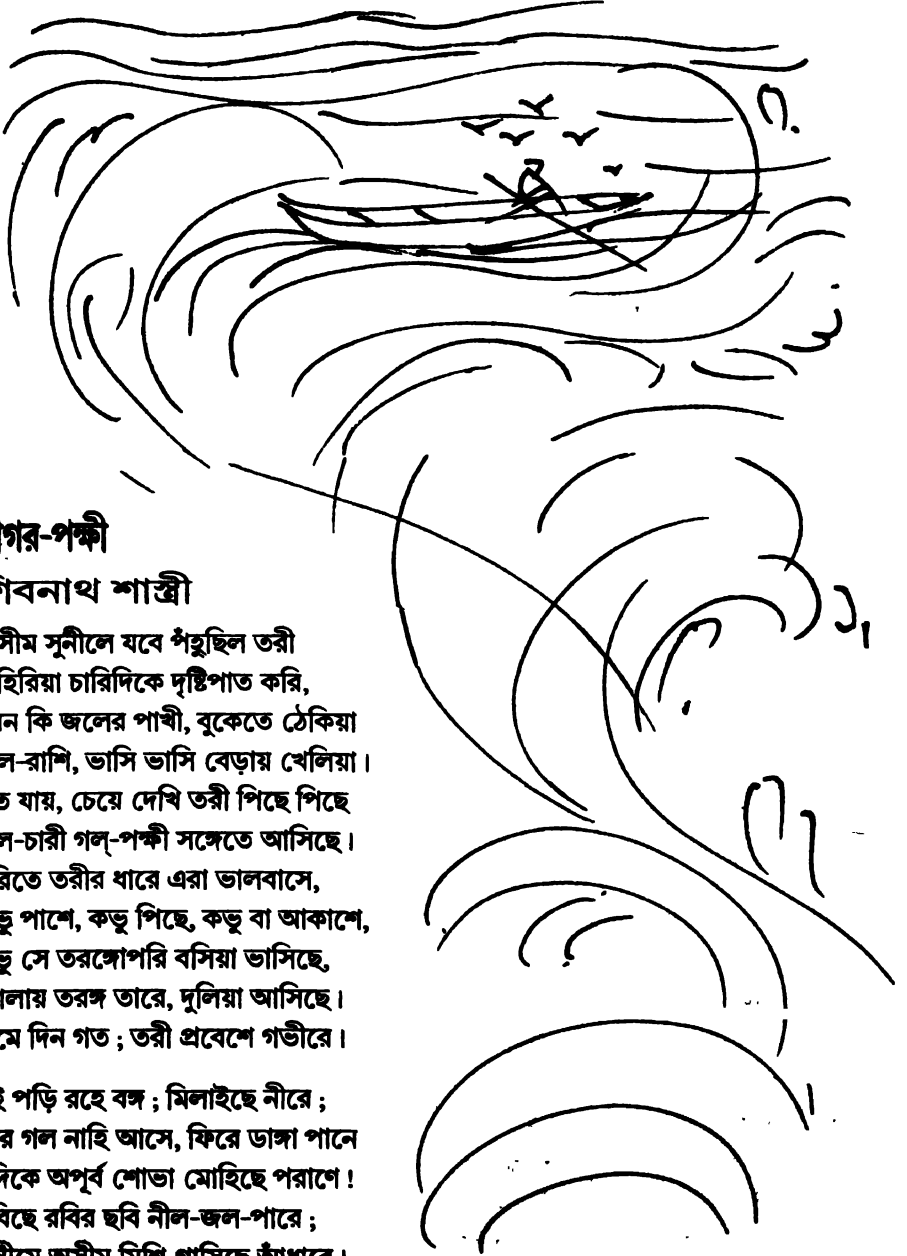 গর-পক্ষী
শিবনাথ শাস্ত্রী
সীম সুনীলে যবে পঁহুছিল তরী
হিরিয়া চারিদিকে দৃষ্টিপাত করি,
ন কি জলের পাখী, বুকেতে ঠেকিয়া
ল-রাশি, ভাসি ভাসি বেড়ায় খেলিয়া।
ত যায়, চেয়ে দেখি তরী পিছে পিছে
ল-চারী গল্-পক্ষী সঙ্গেতে আসিছে।
রিতে তরীর ধারে এরা ভালবাসে,
ভু পাশে, কভু পিছে, কভু বা আকাশে,
ভু সে তরঙ্গোপরি বসিয়া ভাসিছে,
লায় তরঙ্গ তারে, দুলিয়া আসিছে।
মে দিন গত ; তরী প্রবেশে গভীরে।
ই পড়ি রহে বঙ্গ ; মিলাইছে নীরে ;
র গল নাহি আসে, ফিরে ডাঙ্গা পানে
দিকে অপূর্ব শোভা মোহিছে পরাণে !
বিছে রবির ছবি নীল-জল-পারে ;
অসীম মিশি আঁধারে।